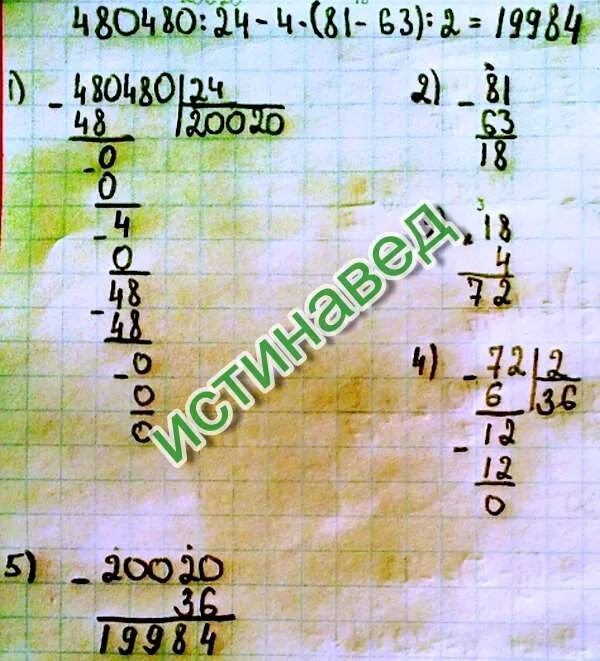 480480:24-4·(81-63):2=19984
1) - 480480 | 24
48 | 20020
- 0
0
- 4
0
- 48
48
- 0
0
0
2) - 81
63
18
3
· 18
4
72
4) - 72 | 2
6 | 36
- 12
12
0
5) - 20020
36
19984
истинавед